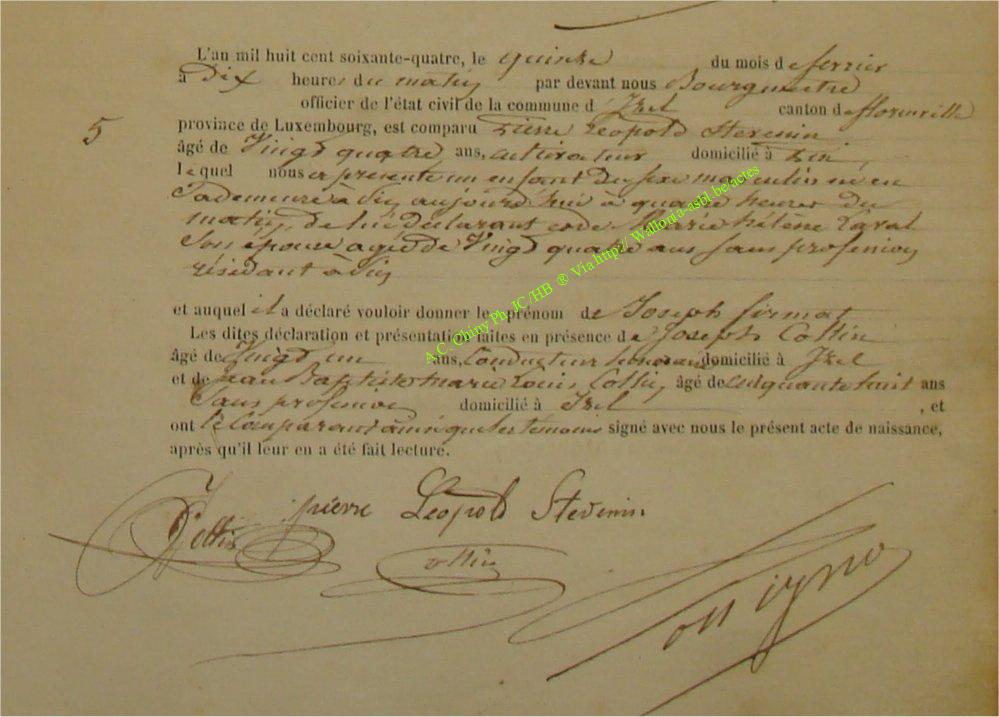 L'an mil huit cent soixante-quatre, le quinze du mois de fevrier
à Dix heures du matin par devant nous Bourgmestre
officier de l'état civil de la commune d'Izel canton de florenville
5
province de Luxembourg, est comparu Pierre Léopold Stevenin
âgé de Vingt quatre ans, cultivateur domicilié à
lequel nous a présenté un enfant du sexe masculin né en
sa demeure à aujourd'hui à quatre heures du
matin, de lui déclarant et de Marie hélène Laval
son épouse agée de Vingt quatre ans sans profession
résidant à
et auquel il a déclaré vouloir donner le prénom de Joseph firmat
Les dites déclaration et présentation faites en présence de Joseph Collin
âgé de Vingt un ans, Conducteur domicilié à Izel
et de Jean Baptiste Marie Louis Collin, âgé de cinquante huit ans
sans profession domicilié à Izel , et
ont le Comparant ainsi que les temoins signé avec nous le présent acte de naissance,
après qu'il leur en a été fait lecture.
pierre Léopold Stevenin
A.C. Chiny Ph. JC/HB ® Via http:// Wallonia-asbl.be/actes